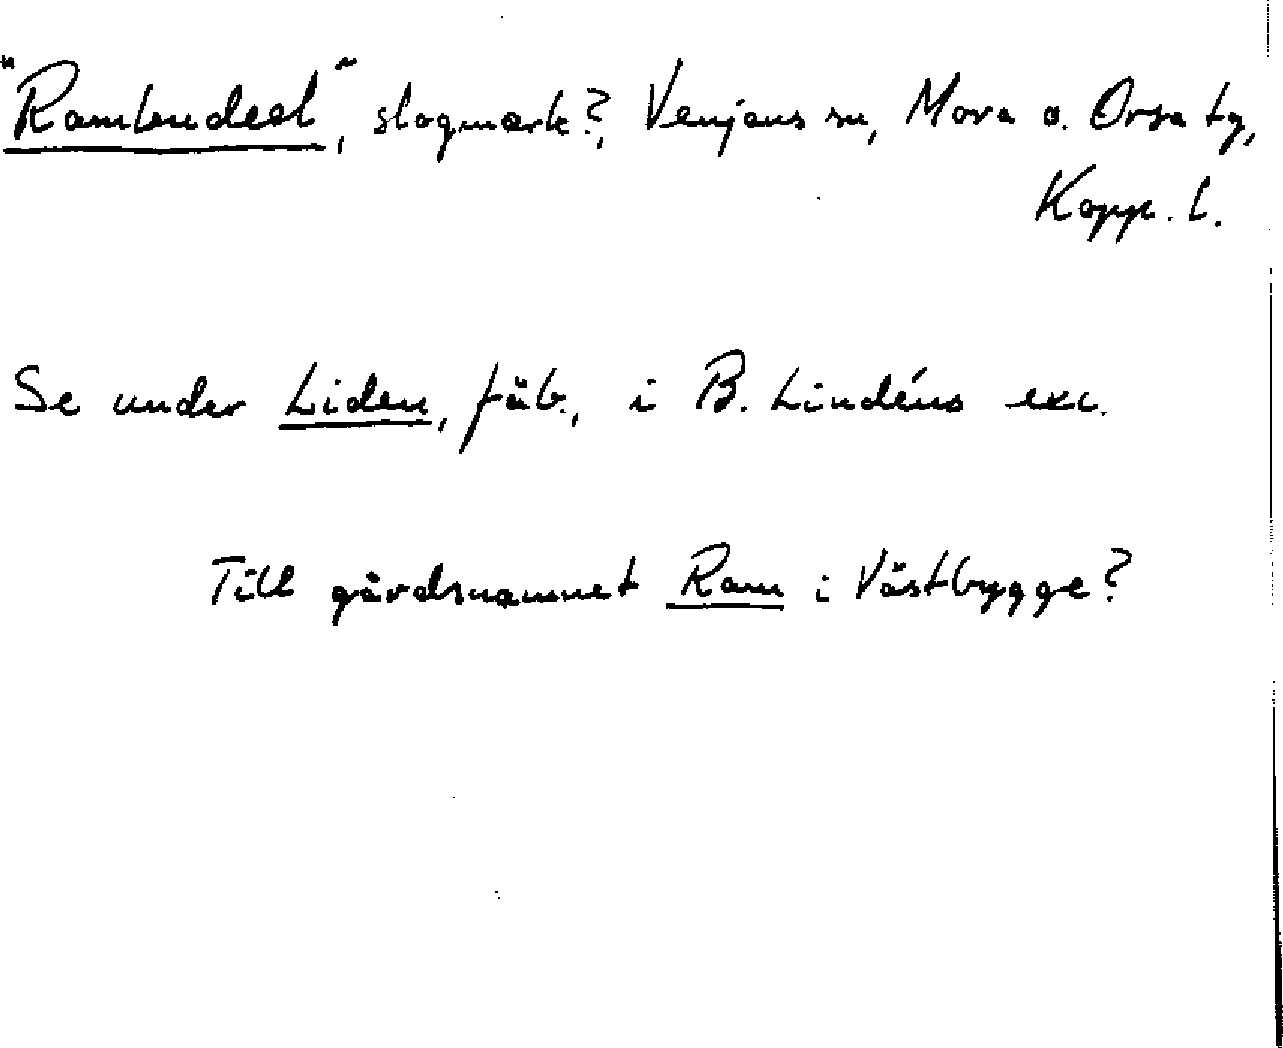 "Rambudeel", slogmark?, Venjans sn, Mora o. Orsa tg,
Kopp. l.
Se under Liden, fäb., i B. Lindéns exc.
Till gårdsnamnet Ram i Västbygge?